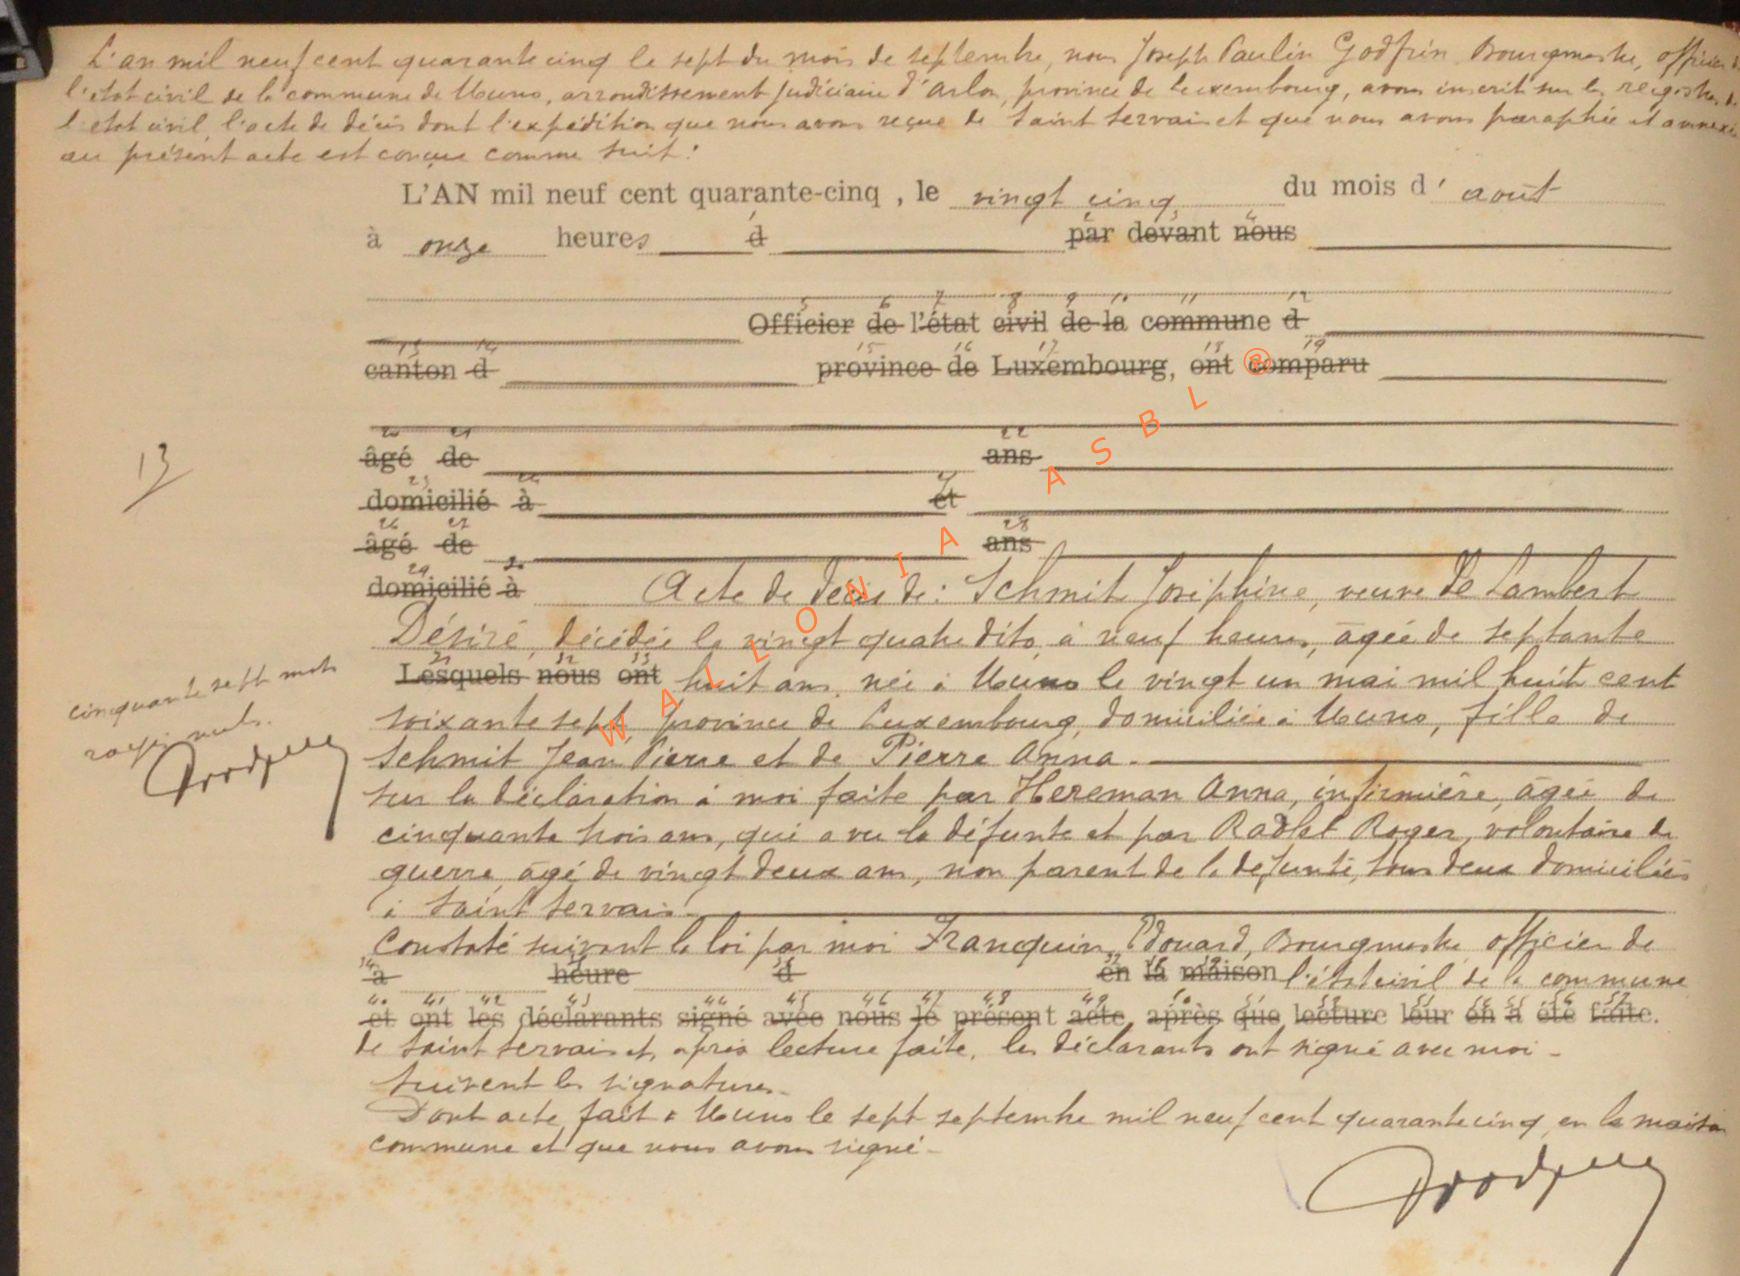 L'an mil neuf cent quarante cinq le sept du mois de septembre, nous Joseph Paulin Godfrin, Bourgmestre, officier d
l'état civil de la commune de Muno, arrondissement judiciaire d'Arlon, province de Luxembourg, avons inscrit sur les registres de
l'état civil, l'acte de décès dont l'expédition que nous avons reçue de Saint Servais et que nous avons paraphée et annexée
au présent acte est conçue comme suit :
L'AN mil neuf cent quarante-cinq , le vingt cinq du mois d' août
à onze heures d par devant nous
Officier de l'état civil de la commune d
canton d province de Luxembourg, ont comparu
âgé de ans
domicilié à et
13
âgé de ans
domicilié à Acte de décès de : Schmit Joséphine, veuve de Lambert
Désiré, décédée le vingt quatre dito, à neuf heures, âgée de septante
Lesquels nous ont huit ans, née à Muno le vingt un mai mil huit cent
cinquante sept mots
soixante sept, province de Luxembourg, domiciliée à Muno, fille de
rayés nuls.
Schmit Jean Pierre et de Pierre Anna.
sur la déclaration à moi faite par Hereman Anna, infirmière, âgée de
cinquante trois ans, qui a vu la défunte et par Radlet Roger, volontaire de
guerre, âgé de vingt deux ans, non parent de la défunte, tous deux domiciliés
à Saint Servais.
Constaté suivant la loi par moi Franquin, Edouard, Bourgmestre officier de
à heure d en la maison l'état civil de la commune
et ont les déclarants signé avec nous le présent acte, après que lecture leur en a été faite.
de Saint Servais et, après lecture faite, les déclarants ont signé avec moi -
Suivent les signatures.
Dont acte, fait à Muno le sept septembre mil neuf cent quarante cinq, en la maison
commune et que nous avons signé -
WALLONIA ASBL ®